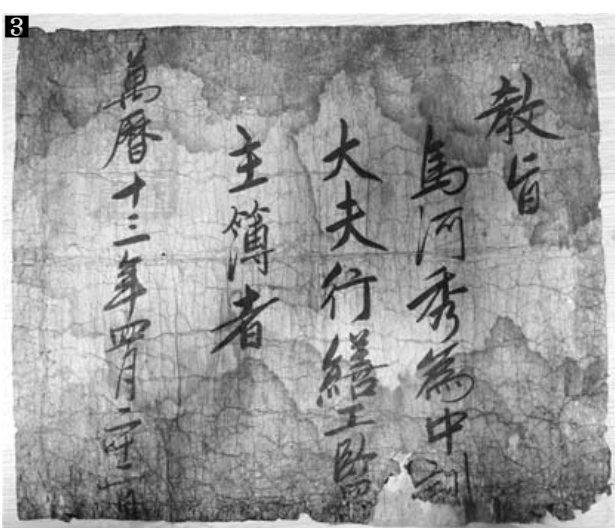 3
敎旨
馬河秀爲中訓
大夫行繕工監
主簿者
萬曆十三年四月二十二日